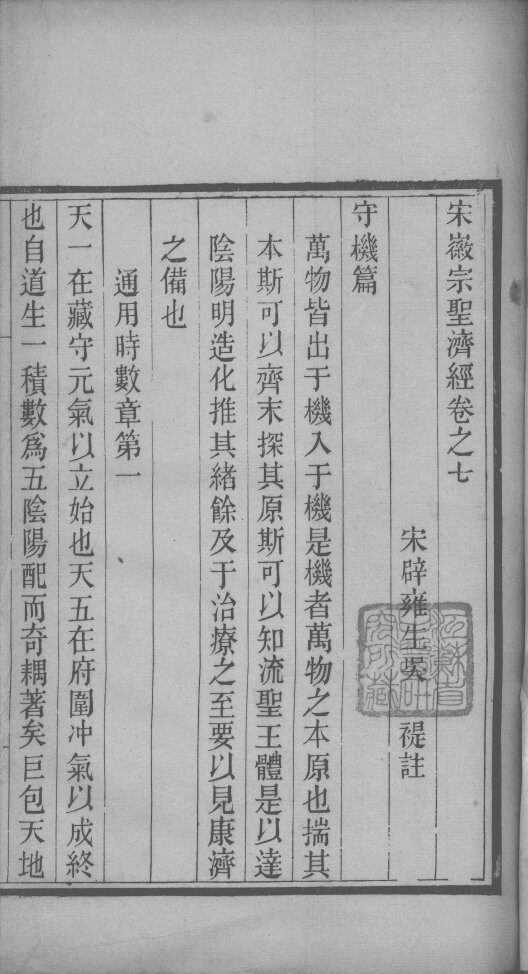 宋徽宗聖濟經卷之七
宋辟雍生吳　禔註
守機篇
萬物皆出于機入于機是機者萬物之本原也揣其
本斯可以齊末探其原斯可以知流聖王體是以達
陰陽明造化推其緒餘及于治療之至要以見康濟
之備也
通用時數章第一
天一在藏守元氣以立始也天五在府圍冲氣以成終
也自道生一積數爲五陰陽配而奇耦著矣巨包天地